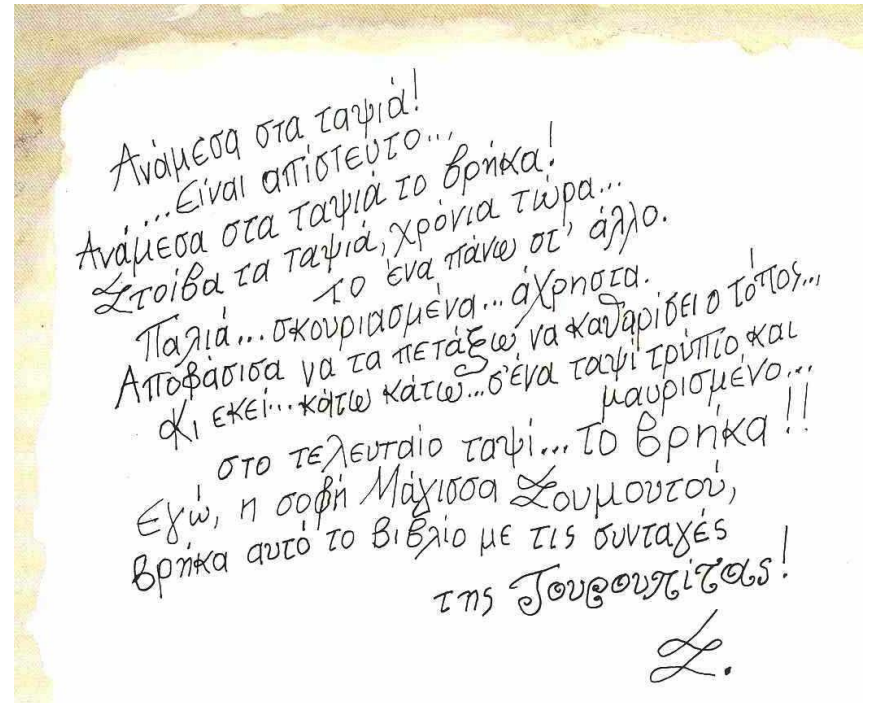 Ανάμεσα στα ταψιά!
...Είναι απίστευτο...
Ανάμεσα στα ταψιά το βρήκα!
Στοίβα τα ταψιά, χρόνια τώρα...
το ένα πάνω στ' άλλο.
Παλιά... σκουριασμένα... άχρηστα.
Αποφάσισα να τα πετάξω να καθαρίσει ο τόπος...
Κι εκεί... κάτω κάτω... σ' ένα ταψί τρύπιο και
μαυρισμένο...
στο τελευταίο ταψί... το βρήκα!!
Εγώ, η σοφή Μάγισσα Σουμουτού,
βρήκα αυτό το βιβλίο με τις συνταγές
της Τουρουπίτας!
Σ.